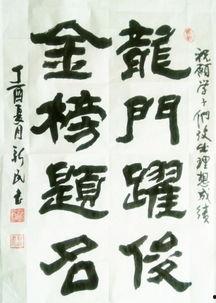 祝願学子们考出理想成绩
龍門躍俊
金榜題名
丁酉夏月新民書